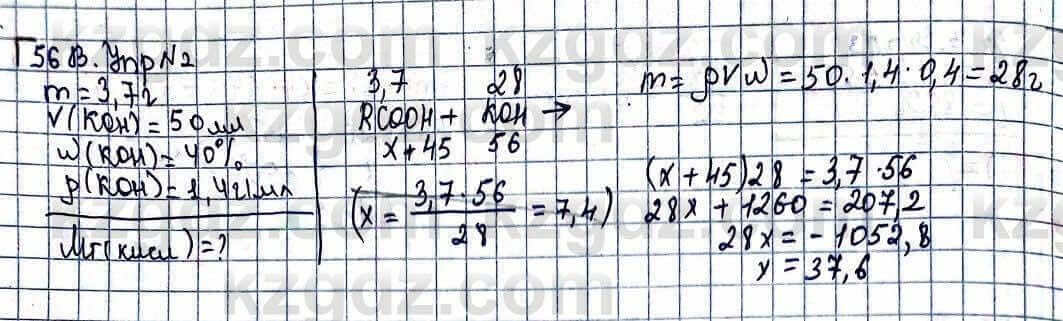 §56 В. Упр N2
m = 3,7г
V(KOH) = 50 мл
w(KOH) = 40%
ρ(KOH) = 1,4 г/мл
Mr(кисл) = ?
3,7 28
RCOOH + KOH →
x + 45 56
(x = 3,7 · 56 / 28 = 7,4)
m = ρVw = 50 · 1,4 · 0,4 = 28г
(x + 45)28 = 3,7 · 56
28x + 1260 = 207,2
28x = - 1052,8
x = 37,6
kzgdz.com